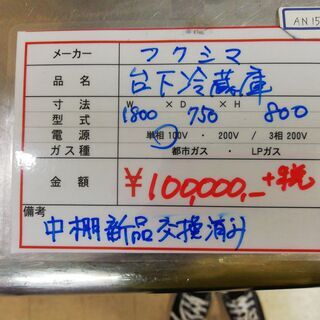 AN15
メーカー フクシマ
品名 台下冷蔵庫
寸法 W × D × H
型式 1800 750 800
電源 単相 100V ・ 200V / 3相 200V
ガス種 都市ガス ・ LPガス
金額 ¥100,000,- +税
備考
中棚新品交換済み